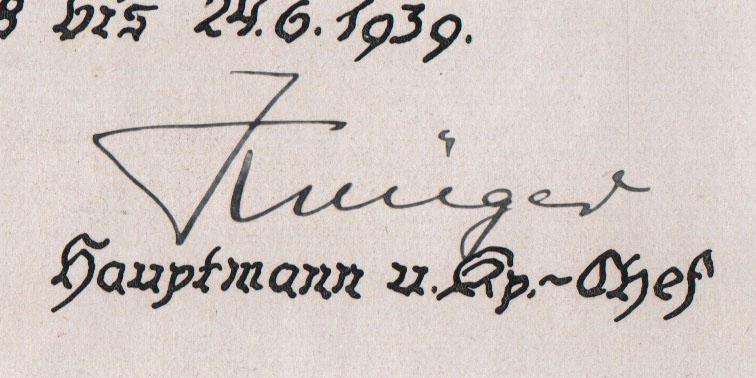 8 bis 24.6.1939.
Krüger
Hauptmann u. Kp.-Chef